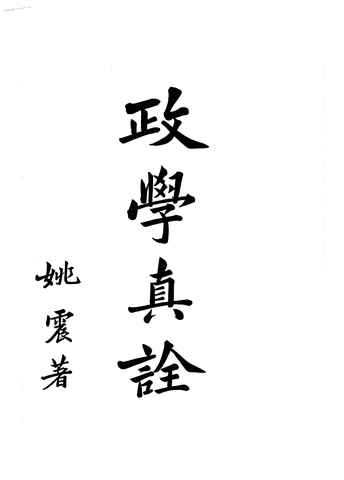 政學真詮
姚震著